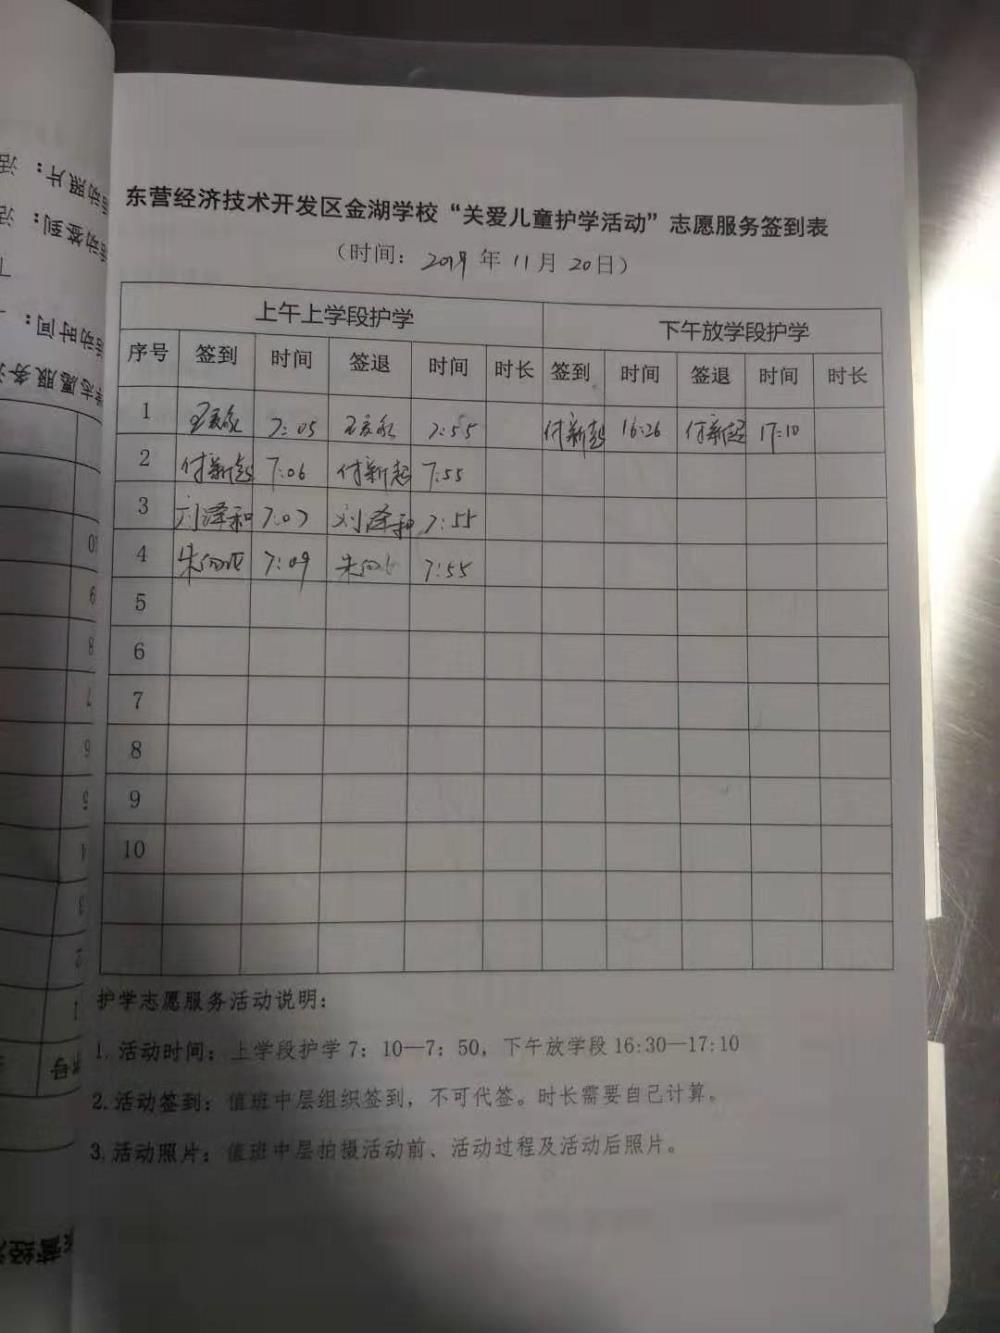 东营经济技术开发区金湖学校“关爱儿童护学活动”志愿服务签到表
（时间：2019年 11月 20日）
上午上学段护学 下午放学段护学
序号 签到 时间 签退 时间 时长 签到 时间 签退 时间 时长
1 7:05 7:55 付新超 16:26 付新超 17:10
2 付新超 7:06 付新超 7:55
3 刘泽和 7:07 刘泽和 7:55
4 7:09 7:55
5
6
7
8
9
10
护学志愿服务活动说明：
1.活动时间：上学段护学 7：10—7：50，下午放学段 16:30—17:10
2.活动签到：值班中层组织签到，不可代签。时长需要自己计算。
3.活动照片：值班中层拍摄活动前、活动过程及活动后照片。
活动照片：活
活动签到：活
活动时间：
学志愿服务活
10
9
8
7
6
5
4
3
2
1
序号
东营经济